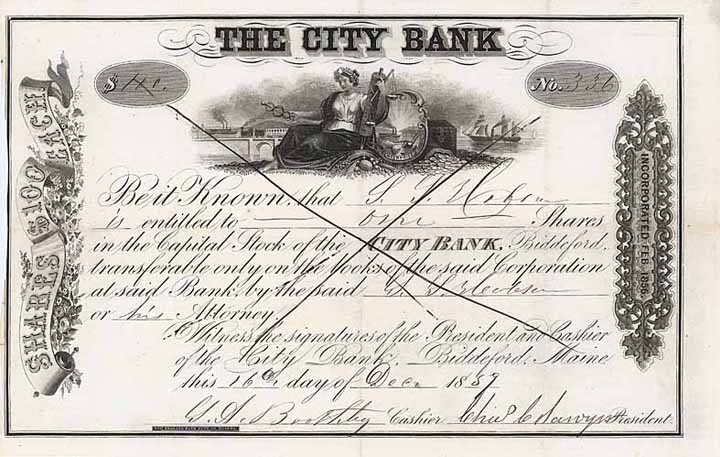 THE CITY BANK
$
No. 336
SHARES $100 EACH.
INCORPORATED FEB. 1856.
Be it Known, that
is entitled to one Shares
in the Capital Stock of the CITY BANK, Biddeford,
transferable only on the books of the said Corporation
at said Bank, by the said
or his Attorney.
Witness the signatures of the President and Cashier
of the City Bank, Biddeford, Maine
this 16th day of Decr 1857
Boothby Cashier Chas. C Sawyer President.